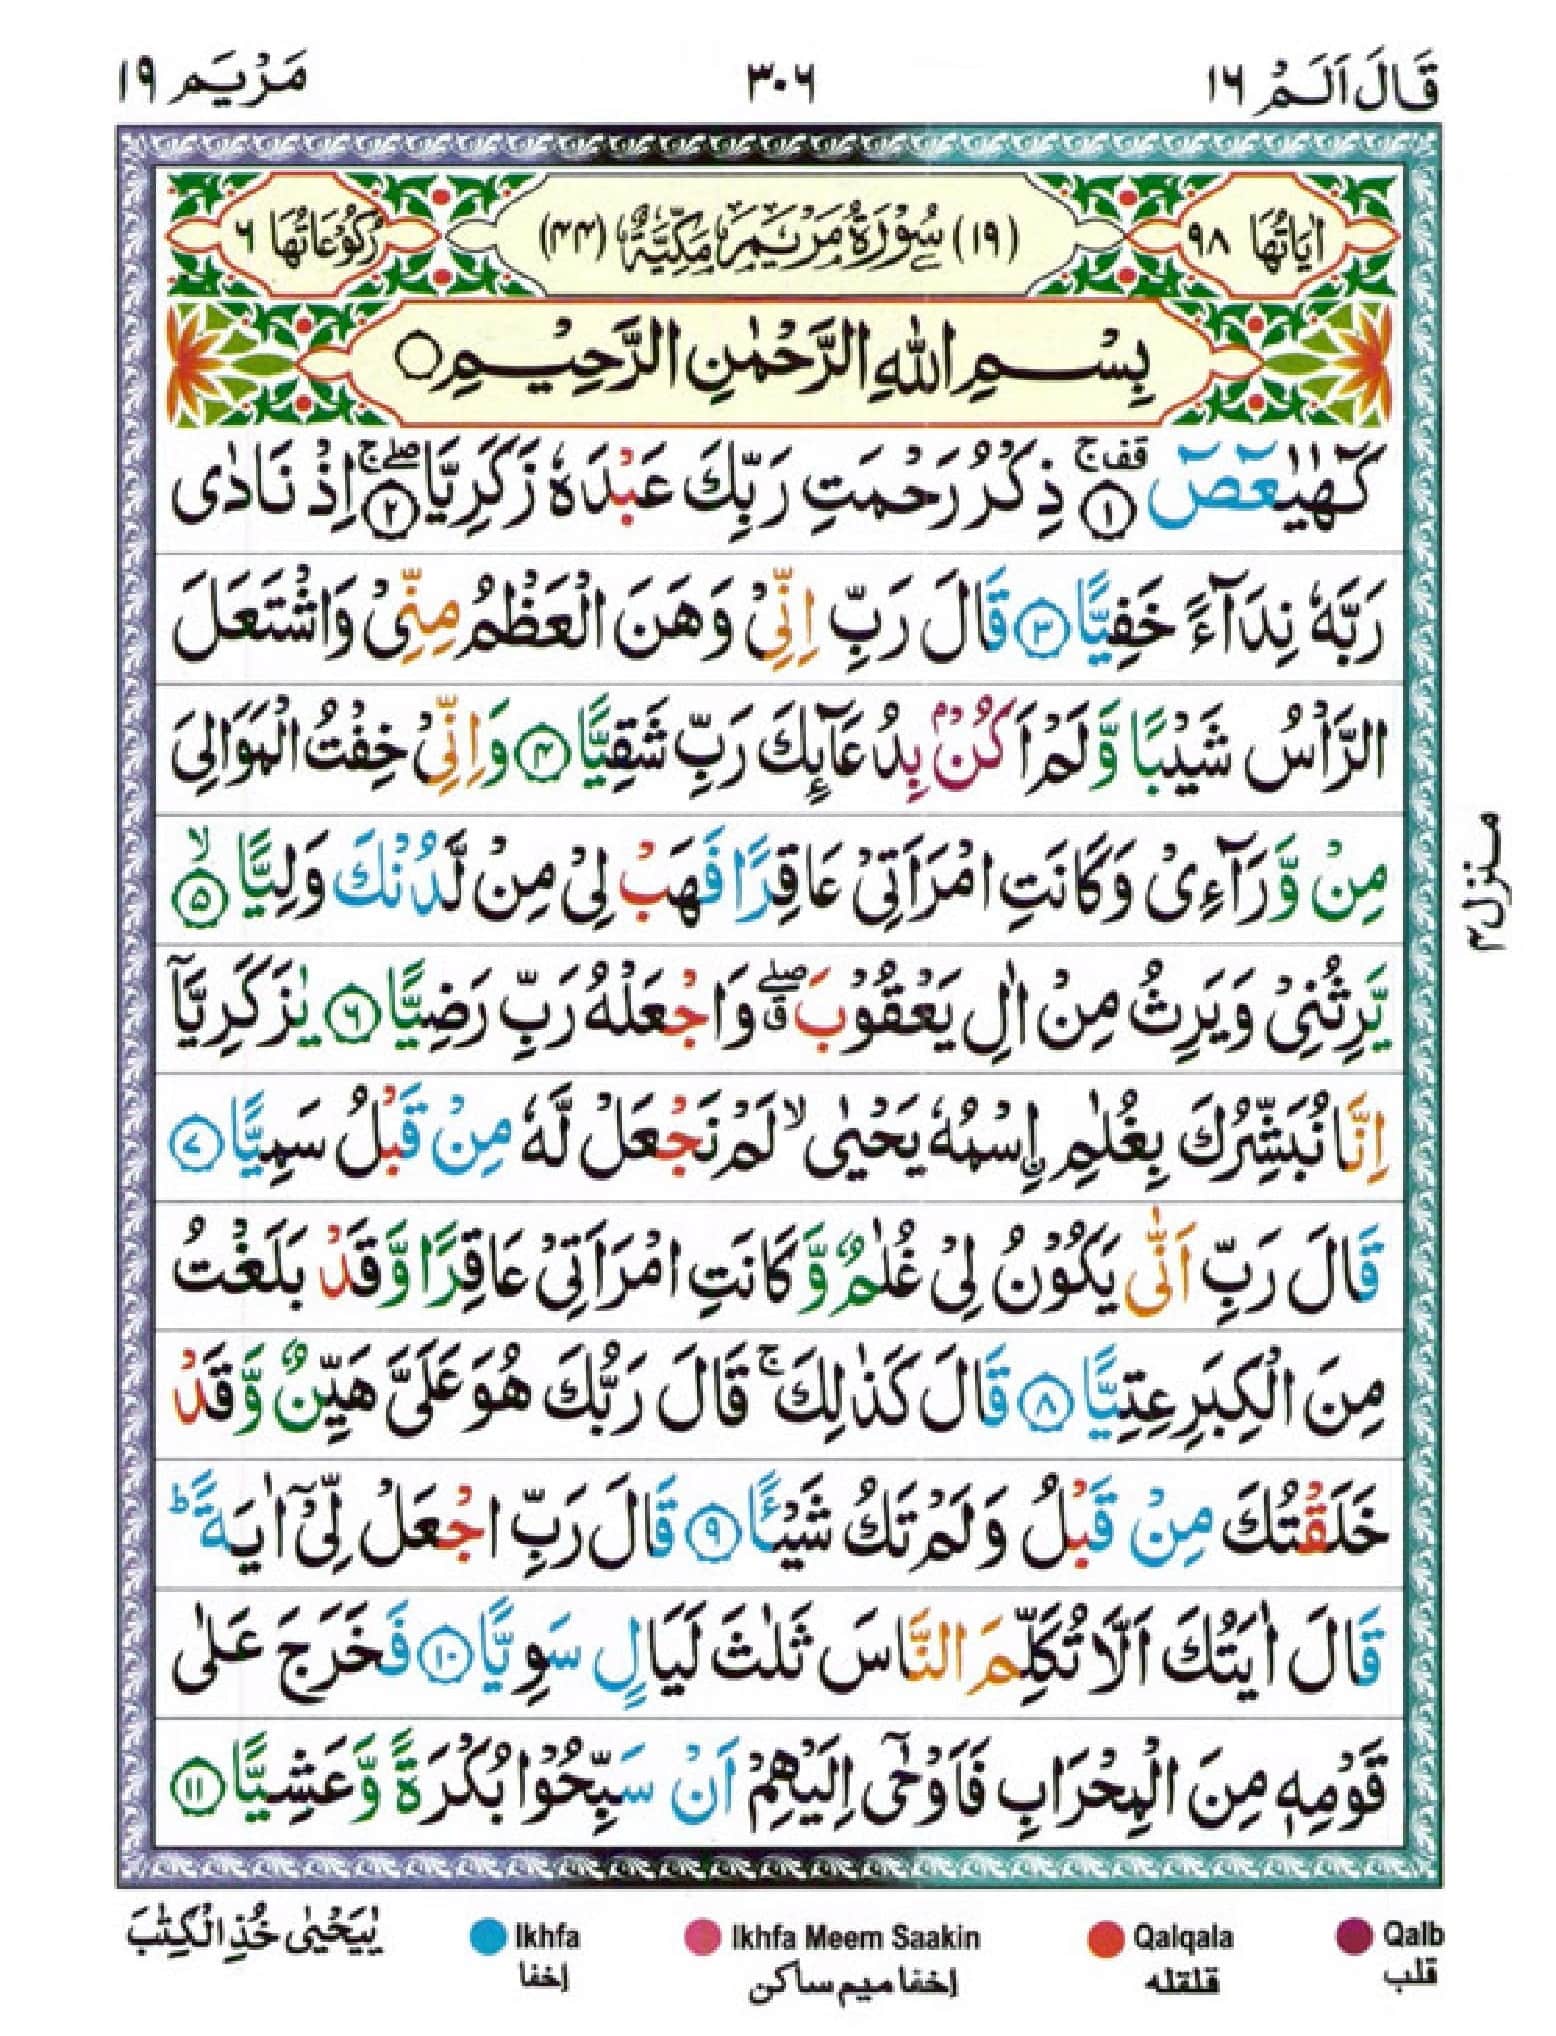 قَالَ اَلَمْ ١٦
٣٠٦
مَرْيَم ١٩
اٰيَاتُهَا ٩٨
(١٩) سُوْرَةُ مَرْيَمَ مَكِّيَّةٌ (٤٤)
رُكُوْعَاتُهَا ٦
بِسْمِ اللّٰهِ الرَّحْمٰنِ الرَّحِيْمِ
كٓهٰيٰعٓصٓ ۚ قف ١ ذِكْرُ رَحْمَتِ رَبِّكَ عَبْدَهٗ زَكَرِيَّا ۖ ۚ ٢ اِذْ نَادٰى
رَبَّهٗ نِدَآءً خَفِيًّا ٣ قَالَ رَبِّ اِنِّىْ وَهَنَ الْعَظْمُ مِنِّىْ وَاشْتَعَلَ
الرَّاْسُ شَيْبًا وَّلَمْ اَكُنْۢ بِدُعَآئِكَ رَبِّ شَقِيًّا ٤ وَاِنِّىْ خِفْتُ الْمَوَالِىَ
مِنْ وَّرَآءِىْ وَكَانَتِ امْرَاَتِىْ عَاقِرًا فَهَبْ لِىْ مِنْ لَّدُنْكَ وَلِيًّا ۙ ٥
يَّرِثُنِىْ وَيَرِثُ مِنْ اٰلِ يَعْقُوْبَ ۖ ق وَاجْعَلْهُ رَبِّ رَضِيًّا ٦ يٰزَكَرِيَّآ
اِنَّا نُبَشِّرُكَ بِغُلٰمِ ِۨاسْمُهٗ يَحْيٰى ۙ لَمْ نَجْعَلْ لَّهٗ مِنْ قَبْلُ سَمِيًّا ٧
قَالَ رَبِّ اَنّٰى يَكُوْنُ لِىْ غُلٰمٌ وَّكَانَتِ امْرَاَتِىْ عَاقِرًا وَّقَدْ بَلَغْتُ
مِنَ الْكِبَرِ عِتِيًّا ٨ قَالَ كَذٰلِكَ ۚ قَالَ رَبُّكَ هُوَ عَلَىَّ هَيِّنٌ وَّقَدْ
خَلَقْتُكَ مِنْ قَبْلُ وَلَمْ تَكُ شَيْـًٔا ٩ قَالَ رَبِّ اجْعَلْ لِّىْٓ اٰيَةً ؕ
قَالَ اٰيَتُكَ اَلَّا تُكَلِّمَ النَّاسَ ثَلٰثَ لَيَالٍ سَوِيًّا ١٠ فَخَرَجَ عَلٰى
قَوْمِهٖ مِنَ الْمِحْرَابِ فَاَوْحٰٓى اِلَيْهِمْ اَنْ سَبِّحُوْا بُكْرَةً وَّعَشِيًّا ١١
منزل ٤
يٰيَحْيٰى خُذِ الْكِتٰبَ
Ikhfa
اخفا
Ikhfa Meem Saakin
اخفا میم ساکن
Qalqala
قلقله
Qalb
قلب